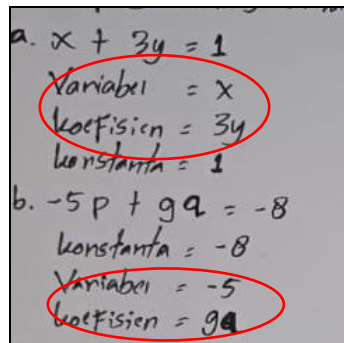 a. x + 3y = 1
Variabel = x
koefisien = 3y
konstanta = 1
b. -5p + 9q = -8
konstanta = -8
Variabel = -5
koefisien = 9q